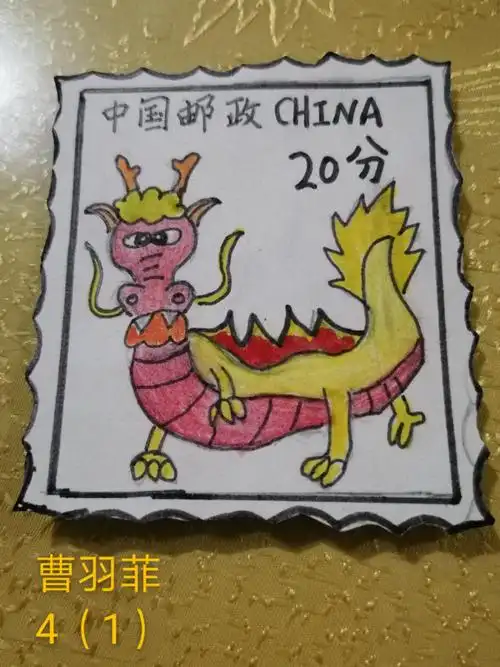 中国邮政CHINA
20分
曹羽菲
4（1）